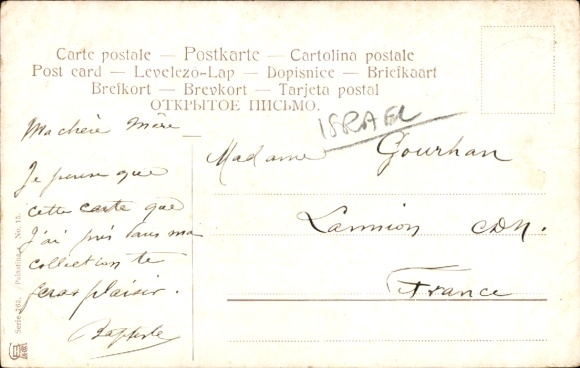 Carte postale — Postkarte — Cartolina postale
Post card — Levelező-Lap — Dopisnice — Briefkaart
Brefkort — Brevkort — Tarjeta postal
ОТКРЫТОЕ ПИСЬМО.
ISRAEL
Ma chère Mère
Je pense que
cette carte que
j'ai pris dans ma
collection te
feras plaisir.
Baptiste
Madame Gourhan
Lannion CDN.
France
Serie 762. Palästina No. 15.